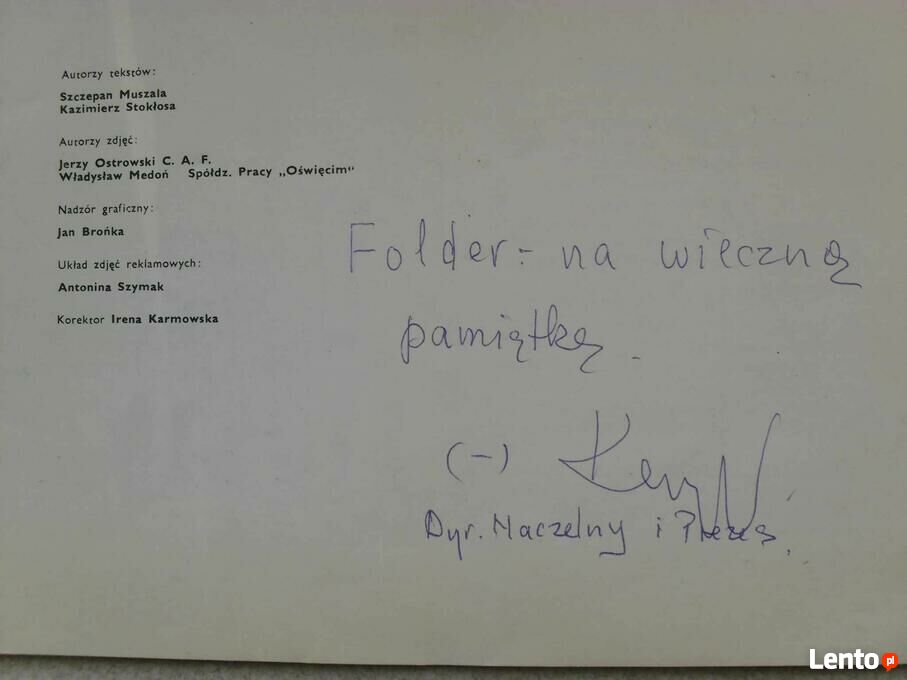 Autorzy tekstów:
Szczepan Muszala
Kazimierz Stokłosa
Autorzy zdjęć:
Jerzy Ostrowski C. A. F.
Władysław Medoń Spółdz. Pracy „Oświęcim"
Nadzór graficzny:
Jan Brońka
Układ zdjęć reklamowych:
Antonina Szymak
Korektor Irena Karmowska
Folder - na wieczną
pamiątkę.
(-)
Dyr. Naczelny i Prezes.
Lento.pl